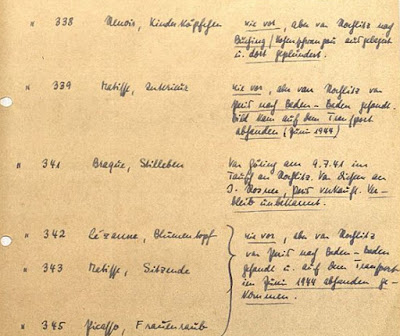 " 338 Renoir, Kinderköpfchen wie vor, aber van Rochlitz nach
ausgelagert
u. dort geplündert.
" 339 Matisse, Interieur wie vor, aber van Rochlitz von
Paris nach Baden-Baden gesandt.
Bild kam auf dem Transport
abhanden (Juni 1944)
" 341 Braque, Stilleben Von Göring am 9.7.41 im
Tausch an Rochlitz. Von diesem an
I. Rosner, Paris verkauft. Ver-
bleib unbekannt.
" 342 Cézanne, Blumentopf wie vor, aber van Rochlitz
von Paris nach Baden-Baden
" 343 Matisse, Sitzende gesandt u. auf dem Transport
im Juni 1944 abhanden ge-
kommen.
" 345 Picasso, Frauenraub